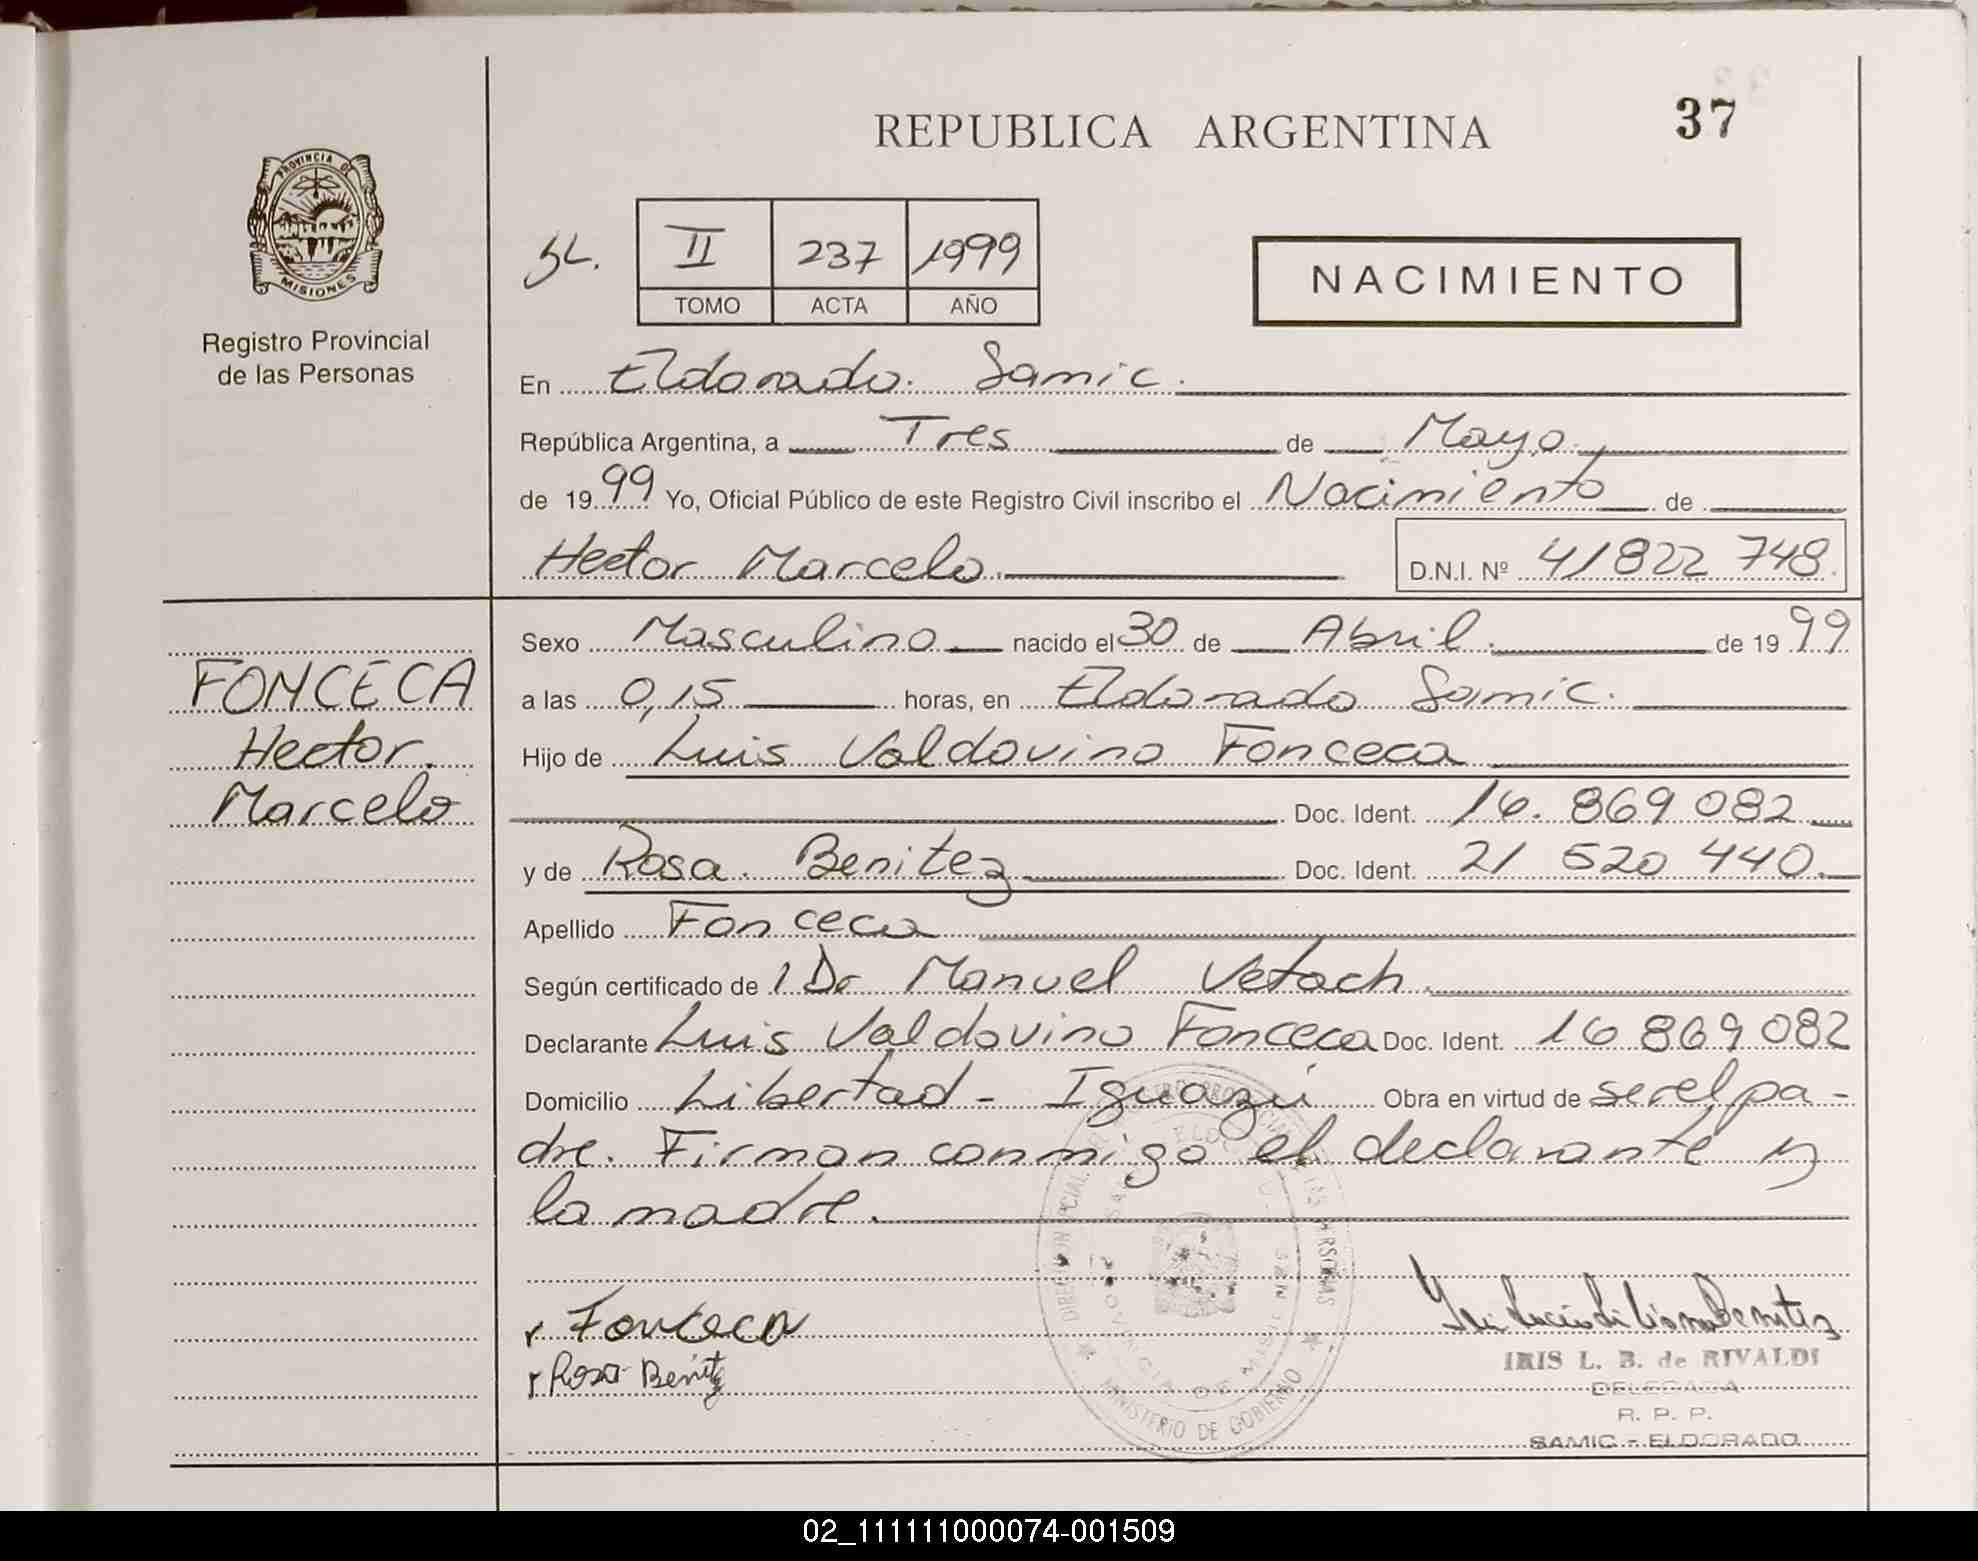 37
REPUBLICA ARGENTINA
PROVINCIA DE
MISIONES
Registro Provincial
de las Personas
II 237 1999
TOMO ACTA AÑO
NACIMIENTO
En Eldorado. Samic.
República Argentina, a Tres de Mayo
de 1999 Yo, Oficial Público de este Registro Civil inscribo el Nacimiento de
Hector Marcelo. D.N.I. Nº 41822 748.
FONCECA
Hector.
Marcelo
Sexo Masculino nacido el 30 de Abril. de 1999
a las 0,15 horas, en Eldorado Samic.
Hijo de Luis Valdovino Fonceca
Doc. Ident. 16. 869 082
y de Rosa. Benitez Doc. Ident. 21 520 440.
Apellido Fonceca
Según certificado de 1 Dr Manuel Vetach.
Declarante Luis Valdovino Fonceca Doc. Ident. 16 869 082
Domicilio Libertad - Iguazú Obra en virtud de ser el pa-
dre. Firman conmigo el declarante y
la madre.
Fonceca
Rosa Benitz
IRIS L. B. de RIVALDI
DELEGADA
R. P. P.
SAMIC - ELDORADO
MINISTERIO DE GOBIERNO
02_111111000074-001509